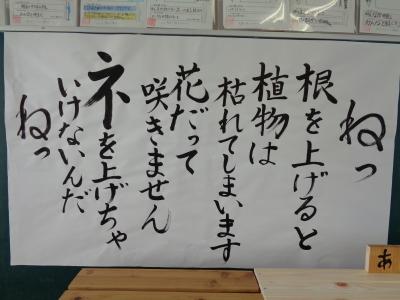 ねっ
根を上げると
植物は
枯れてしまいます
花だって
咲きません
ネを上げちゃ
いけないんだ
ねっ
あ